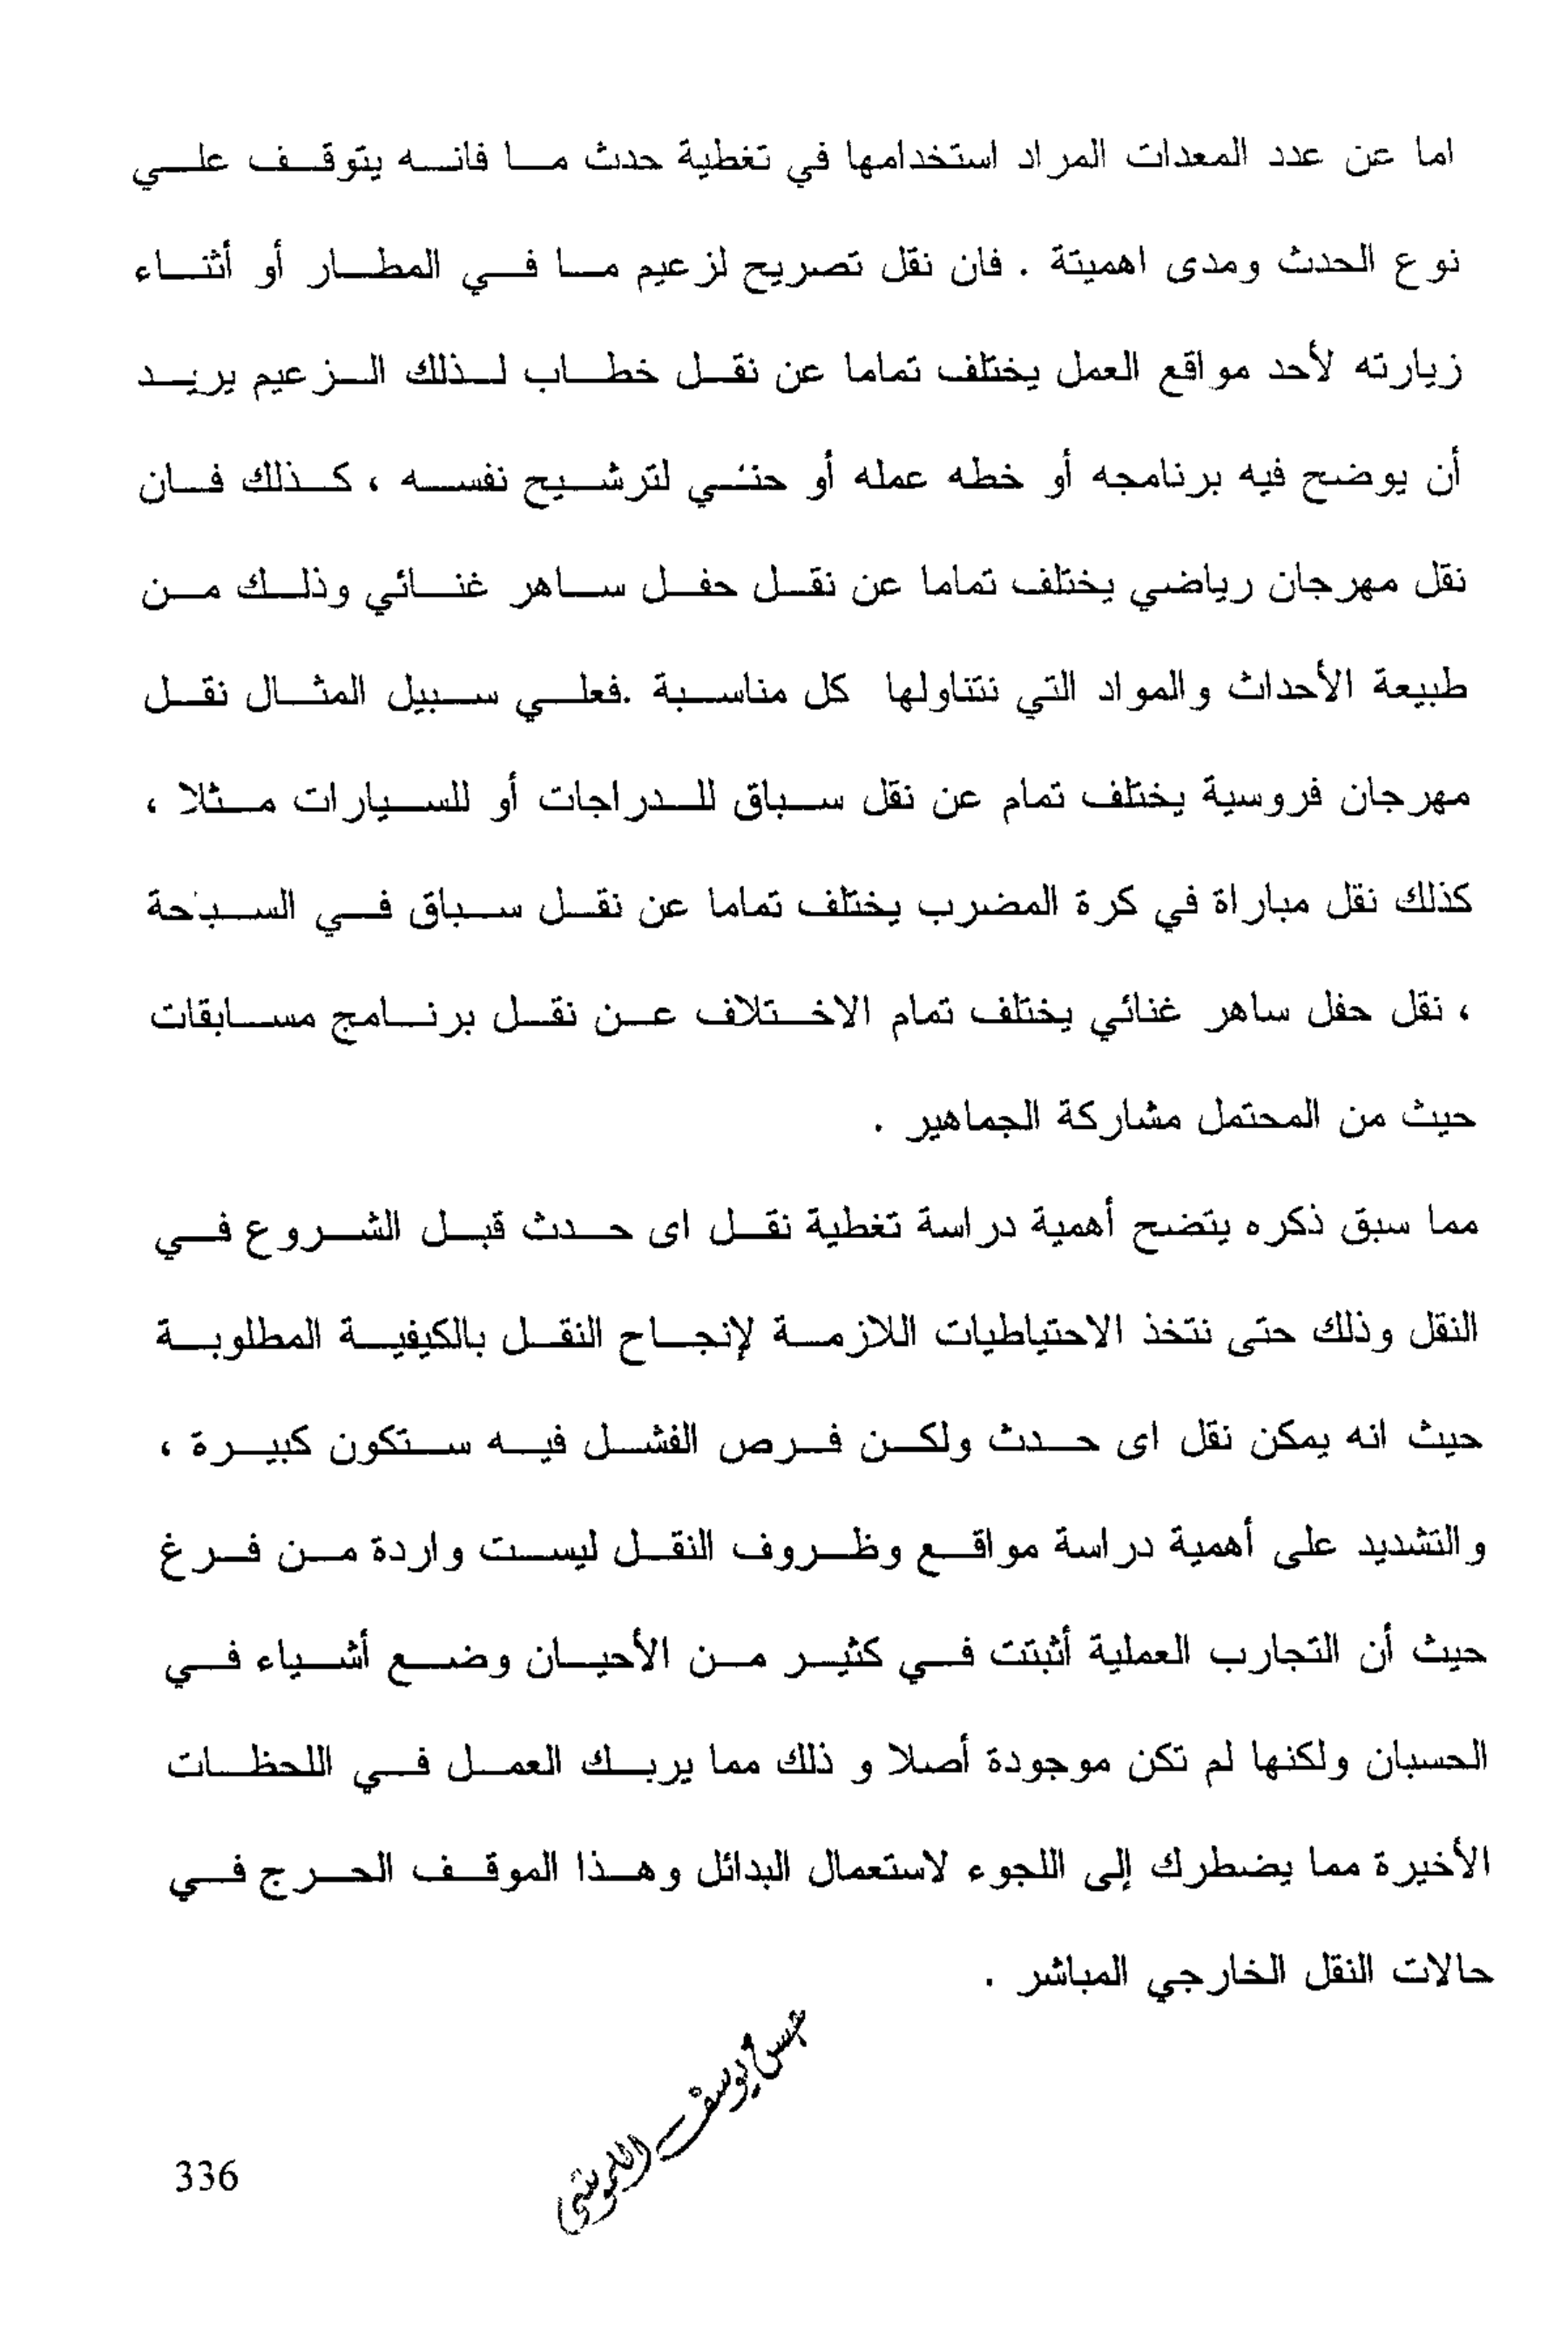 اما عن عدد المعدات المراد استخدامها في تغطية حدث ما فانه يتوقف علي
نوع الحدث ومدى اهميتة . فان نقل تصريح لزعيم ما في المطار أو أثناء
زيارته لأحد مواقع العمل يختلف تماما عن نقل خطاب لذلك الزعيم يريد
أن يوضح فيه برنامجه أو خطه عمله أو حتي لترشيح نفسه ، كذلك فان
نقل مهرجان رياضي يختلف تماما عن نقل حفل ساهر غنائي وذلك من
طبيعة الأحداث والمواد التي نتناولها كل مناسبة .فعلي سبيل المثال نقل
مهرجان فروسية يختلف تمام عن نقل سباق للدراجات أو للسيارات مثلا ،
كذلك نقل مباراة في كرة المضرب يختلف تماما عن نقل سباق في السباحة
، نقل حفل ساهر غنائي يختلف تمام الاختلاف عن نقل برنامج مسابقات
حيث من المحتمل مشاركة الجماهير .
مما سبق ذكره يتضح أهمية دراسة تغطية نقل اى حدث قبل الشروع في
النقل وذلك حتى نتخذ الاحتياطيات اللازمة لإنجاح النقل بالكيفية المطلوبة
حيث انه يمكن نقل اى حدث ولكن فرص الفشل فيه ستكون كبيرة ،
والتشديد على أهمية دراسة مواقع وظروف النقل ليست واردة من فرغ
حيث أن التجارب العملية أثبتت في كثير من الأحيان وضع أشياء في
الحسبان ولكنها لم تكن موجودة أصلا و ذلك مما يربك العمل في اللحظات
الأخيرة مما يضطرك إلى اللجوء لاستعمال البدائل وهذا الموقف الحرج في
حالات النقل الخارجي المباشر .
يوسف
336